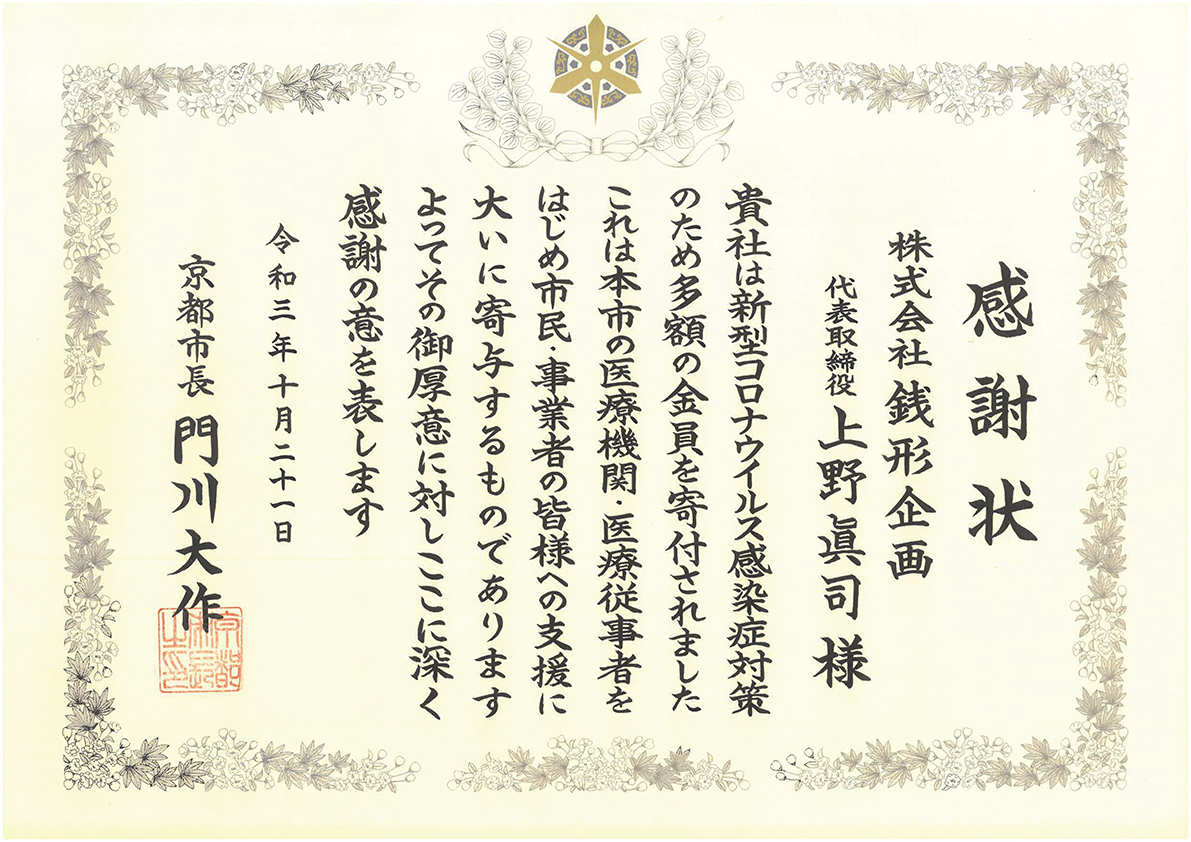 感謝状
株式会社銭形企画
代表取締役 上野眞司 様
貴社は新型コロナウイルス感染症対策
のため多額の金員を寄付されました
これは本市の医療機関・医療従事者を
はじめ市民・事業者の皆様への支援に
大いに寄与するものであります
よってその御厚意に対しここに深く
感謝の意を表します
令和三年十月二十一日
京都市長 門川大作
京都市長之印